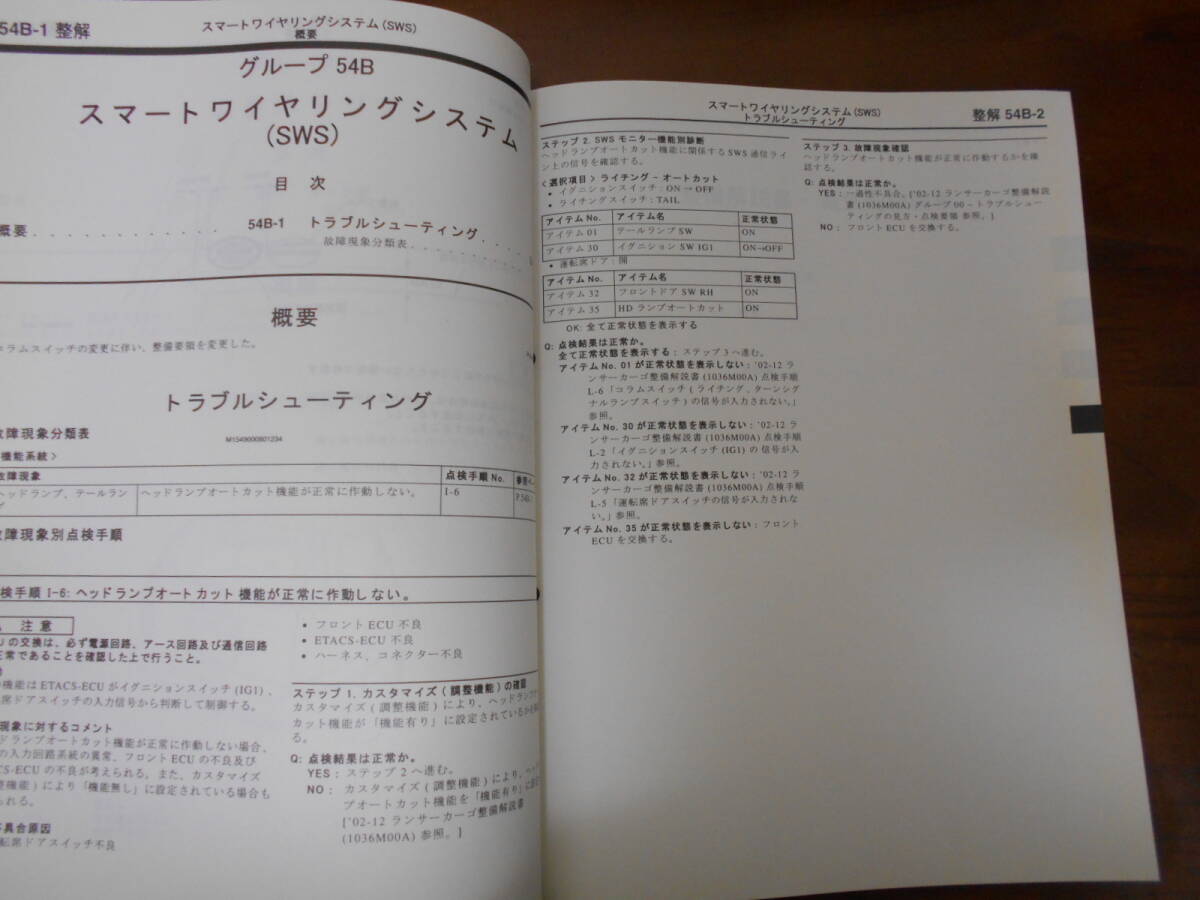 54B-1 整解
スマートワイヤリングシステム(SWS)
概要
グループ 54B
スマートワイヤリングシステム
(SWS)
目 次
概要 . . . . . . . . . . . . . . . 54B-1
トラブルシューティング . . . .
故障現象分類表 . . . . . . . . . .
概要
コラムスイッチの変更に伴い、整備要領を変更した。
トラブルシューティング
故障現象分類表
M1549000801234
機能系統 >
故障現象 点検手順 No.
ヘッドランプ、テールラン ヘッドランプオートカット機能が正常に作動しない。 I-6
故障現象別点検手順
検手順 I-6: ヘッドランプオートカット機能が正常に作動しない。
注 意
の交換は、必ず電源回路、アース回路及び通信回路
正常であることを確認した上で行うこと。
機能は ETACS-ECU がイグニションスイッチ (IG1) 、
席ドアスイッチの入力信号から判断して制御する。
現象に対するコメント
ドランプオートカット機能が正常に作動しない場合、
の入力回路系統の異常、フロント ECU の不良及び
CS-ECU の不良が考えられる。また、カスタマイズ
整機能 ) により「機能無し」に設定されている場合も
られる。
不具合原因
転席ドアスイッチ不良
• フロント ECU 不良
• ETACS-ECU 不良
• ハーネス、コネクター不良
ステップ 1. カスタマイズ ( 調整機能 ) の確認
カスタマイズ ( 調整機能 ) により、ヘッドランプオ
カット機能が「機能有り」に設定されているか
る。
Q: 点検結果は正常か。
YES : ステップ 2 へ進む。
NO : カスタマイズ ( 調整機能 ) により、ヘッ
プオートカット機能を「機能有り」に設
[’02-12 ランサーカーゴ整備解説書
(1036M00A) 参照。]
スマートワイヤリングシステム(SWS)
トラブルシューティング
整解 54B-2
ステップ 2. SWS モニター機能別診断
ヘッドランプオートカット機能に関係する SWS 通信ライ
ン上の信号を確認する。
< 選択項目 > ライチング - オートカット
• イグニションスイッチ : ON → OFF
• ライチングスイッチ : TAIL
アイテム No. アイテム名 正常状態
アイテム 01 テールランプ SW ON
アイテム 30 イグニション SW IG1 ON→OFF
• 運転席ドア : 開
アイテム No. アイテム名 正常状態
アイテム 32 フロントドア SW RH ON
アイテム 35 HD ランプオートカット ON
OK: 全て正常状態を表示する
Q: 点検結果は正常か。
全て正常状態を表示する : ステップ 3 へ進む。
アイテム No. 01 が正常状態を表示しない : ’02-12 ラ
ンサーカーゴ整備解説書 (1036M00A) 点検手順
L-6「コラムスイッチ ( ライチング、ターンシグ
ナルランプスイッチ ) の信号が入力されない。」
参照。
アイテム No. 30 が正常状態を表示しない : ’02-12 ラ
ンサーカーゴ整備解説書 (1036M00A) 点検手順
L-2「イグニションスイッチ (IG1) の信号が入
力されない。」参照。
アイテム No. 32 が正常状態を表示しない : ’02-12 ラ
ンサーカーゴ整備解説書 (1036M00A) 点検手順
L-5「運転席ドアスイッチの信号が入力されな
い。」参照。
アイテム No. 35 が正常状態を表示しない : フロント
ECU を交換する。
ステップ 3. 故障現象確認
ヘッドランプオートカット機能が正常に作動するかを確
認する。
Q: 点検結果は正常か。
YES : 一過性不具合。[’02-12 ランサーカーゴ整備解説
書 (1036M00A) グループ 00 - トラブルシュー
ティングの見方・点検要領 参照。]
NO : フロント ECU を交換する。